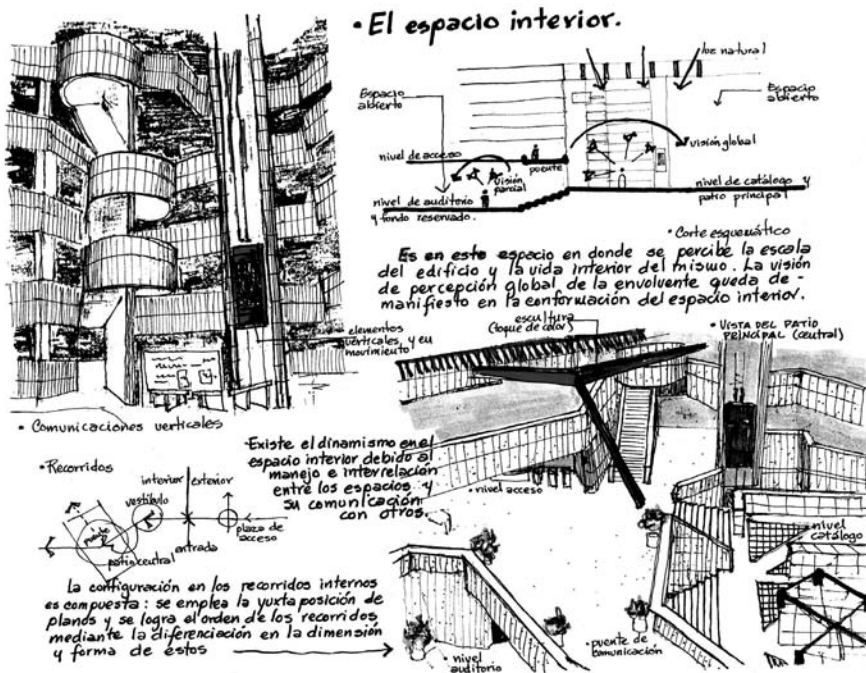 • El espacio interior.
luz natural
Espacio
abierto
Espacio
abierto
visión global
nivel de acceso
puente
visión
parcial
nivel de auditorio
y fondo reservado.
nivel de catálogo y
patio principal
• Corte esquemático
Es en este espacio en donde se percibe la escala
del edificio y la vida interior del mismo. La visión
de percepción global de la envolvente queda de-
manifiesto en la conformación del espacio interior.
elementos
verticales, y su
movimiento
• Comunicaciones verticales
escultura
(toque de color)
• VISTA DEL PATIO
PRINCIPAL (central)
• Existe el dinamismo en el
espacio interior debido al
manejo e interrelación
entre los espacios y
su comunicación
con otros.
• Recorridos
interior
exterior
vestíbulo
puente
patio central
entrada
plaza de
acceso
La configuración en los recorridos internos
es compuesta: se emplea la yuxtaposición de
planos y se logra el orden de los recorridos
mediante la diferenciación en la dimensión
y forma de éstos
• nivel acceso
• nivel
catálogo
• nivel
auditorio
• puente de
comunicación